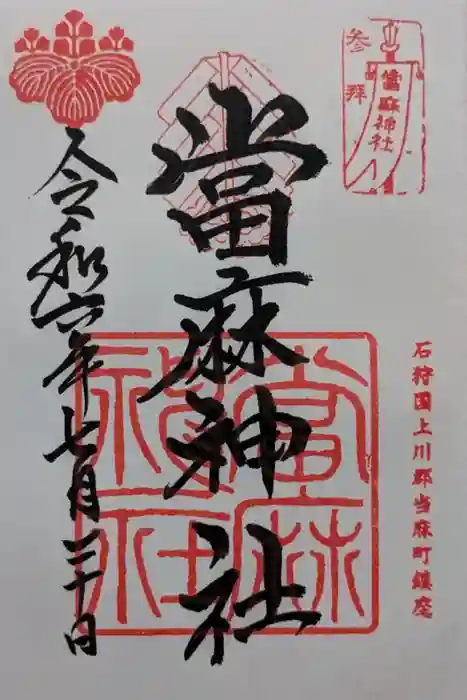 参拝
當麻神社
石狩国上川郡当麻町鎮座
當麻神社
當麻神社
令和六年七月二十日